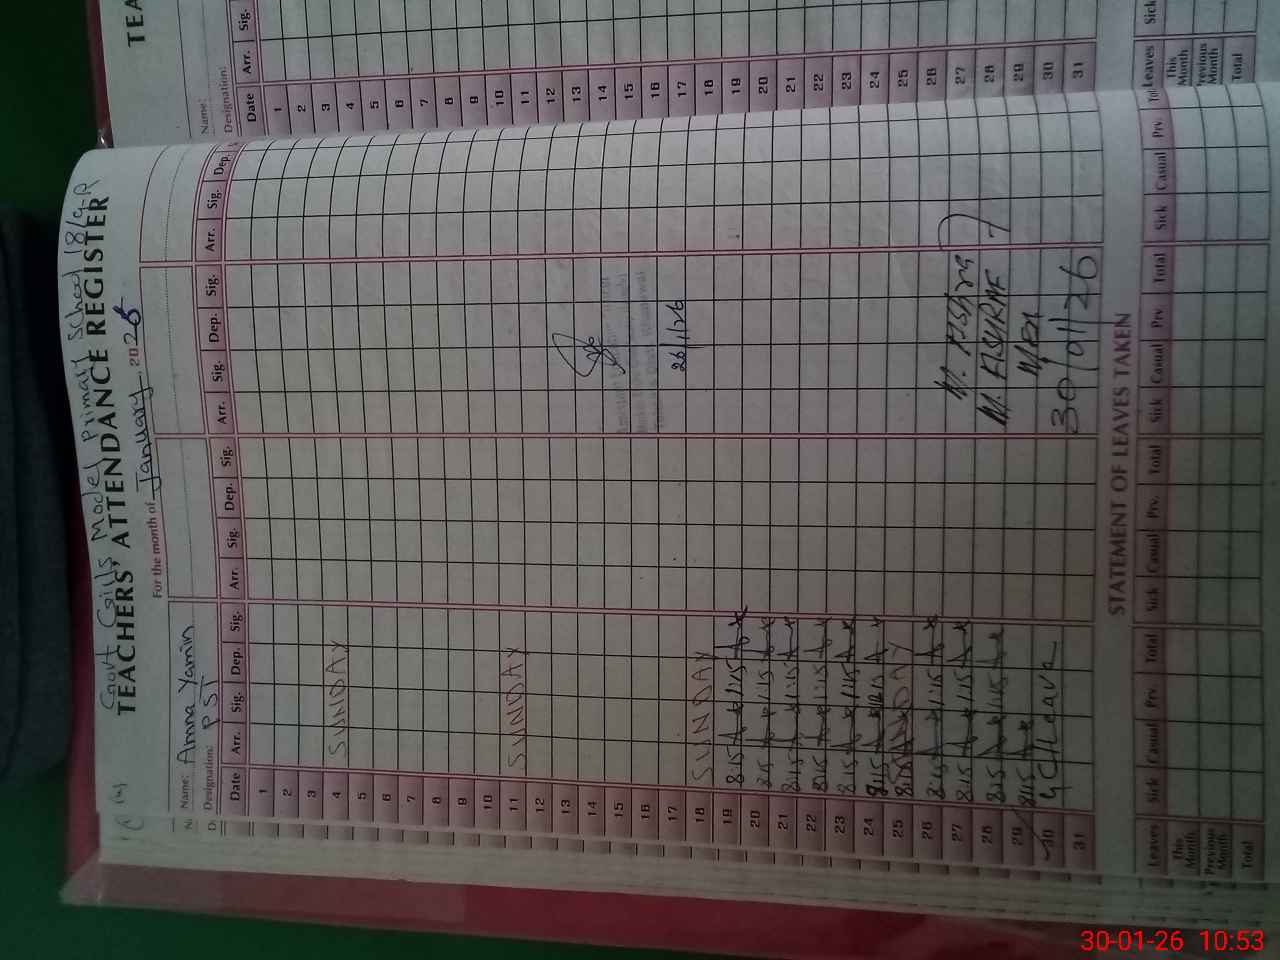 Govt Girls Model Primary School 18/9-R
TEACHERS' ATTENDANCE REGISTER
For the month of January, 2026
Name: Amna Yamin
Designation: PST
Date Arr. Sig. Dep. Sig. Arr. Sig. Dep. Sig. Arr. Sig. Dep. Sig. Arr. Sig. Dep.
1
2
3
4 SUNDAY
5
6
7
8
9
10
11 SUNDAY
12
13
14
15
16
17 26/1/26
18 SUNDAY
19 8:15 1:15
20 8:15 1:15
21 8:15 1:15
22 8:15 1:15
23 8:15 1:15
24 8:15
25 SUNDAY
26 8:15 1:15
27 8:15 1:15
28 8:15 1:15
29 8:15
30 C/Leave
31
30/01/26
STATEMENT OF LEAVES TAKEN
Leaves Sick Casual Prv. Total Sick Casual Prv. Total Sick Casual Prv. Total Sick Casual Prv.
This Month
Previous Month
Total
TEA
Name:
Designation:
Date Arr. Sig.
1
2
3
4
5
6
7
8
9
10
11
12
13
14
15
16
17
18
19
20
21
22
23
24
25
26
27
28
29
30
31
Leaves Sick
This Month
Previous Month
Total
30-01-26 10:53